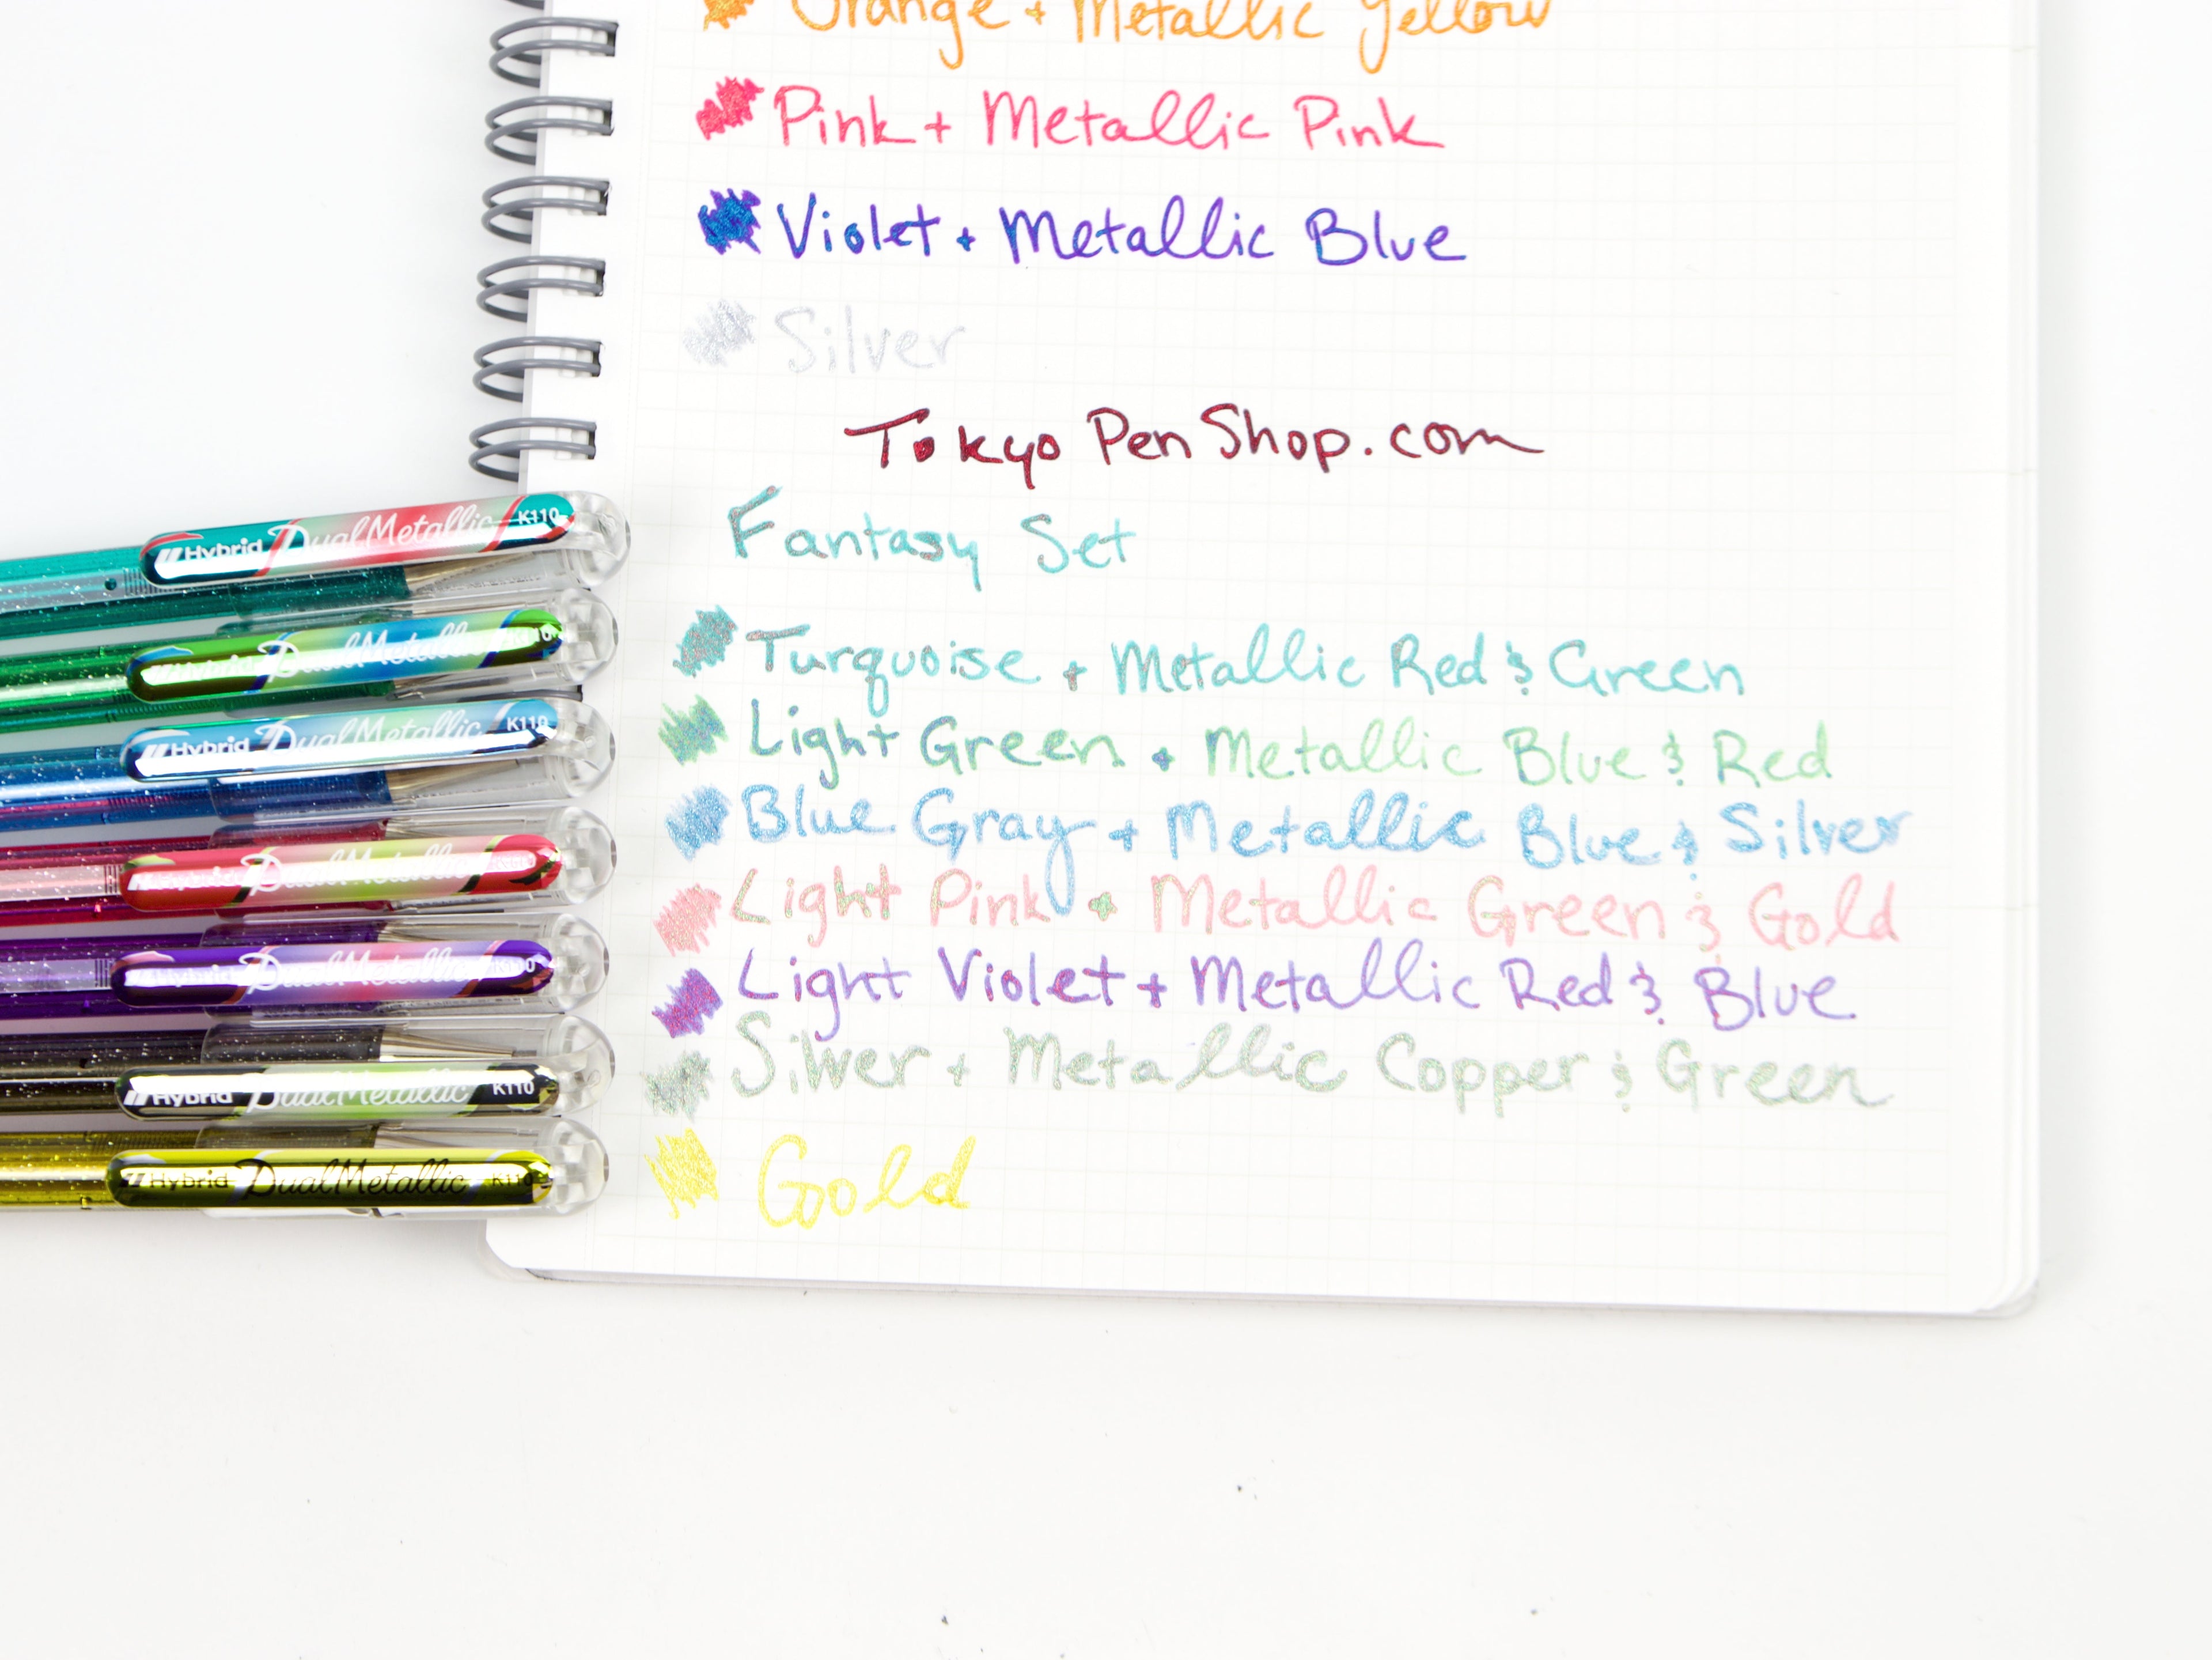 Orange + Metallic Yellow
Pink + Metallic Pink
Violet + Metallic Blue
Silver
TokyoPenShop.com
Fantasy Set
Turquoise + Metallic Red & Green
Light Green + Metallic Blue & Red
Blue Gray + Metallic Blue & Silver
Light Pink + Metallic Green & Gold
Light Violet + Metallic Red & Blue
Silver + Metallic Copper & Green
Gold
Hybrid DualMetallic K110
Hybrid DualMetallic K110
Hybrid DualMetallic K110
Hybrid DualMetallic
Hybrid DualMetallic K110
Hybrid DualMetallic K110
Hybrid DualMetallic K110